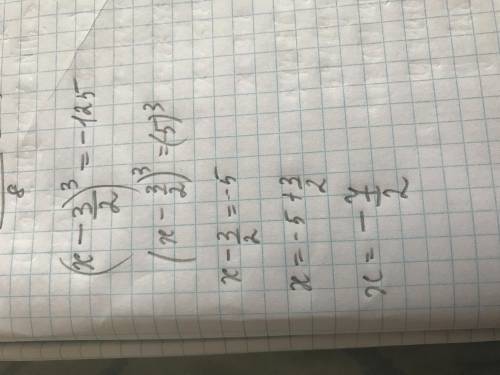 8
(x - 3/2)³ = -125
(x - 3/2)³ = (5)³
x - 3/2 = -5
x = -5 + 3/2
x = - 7/2